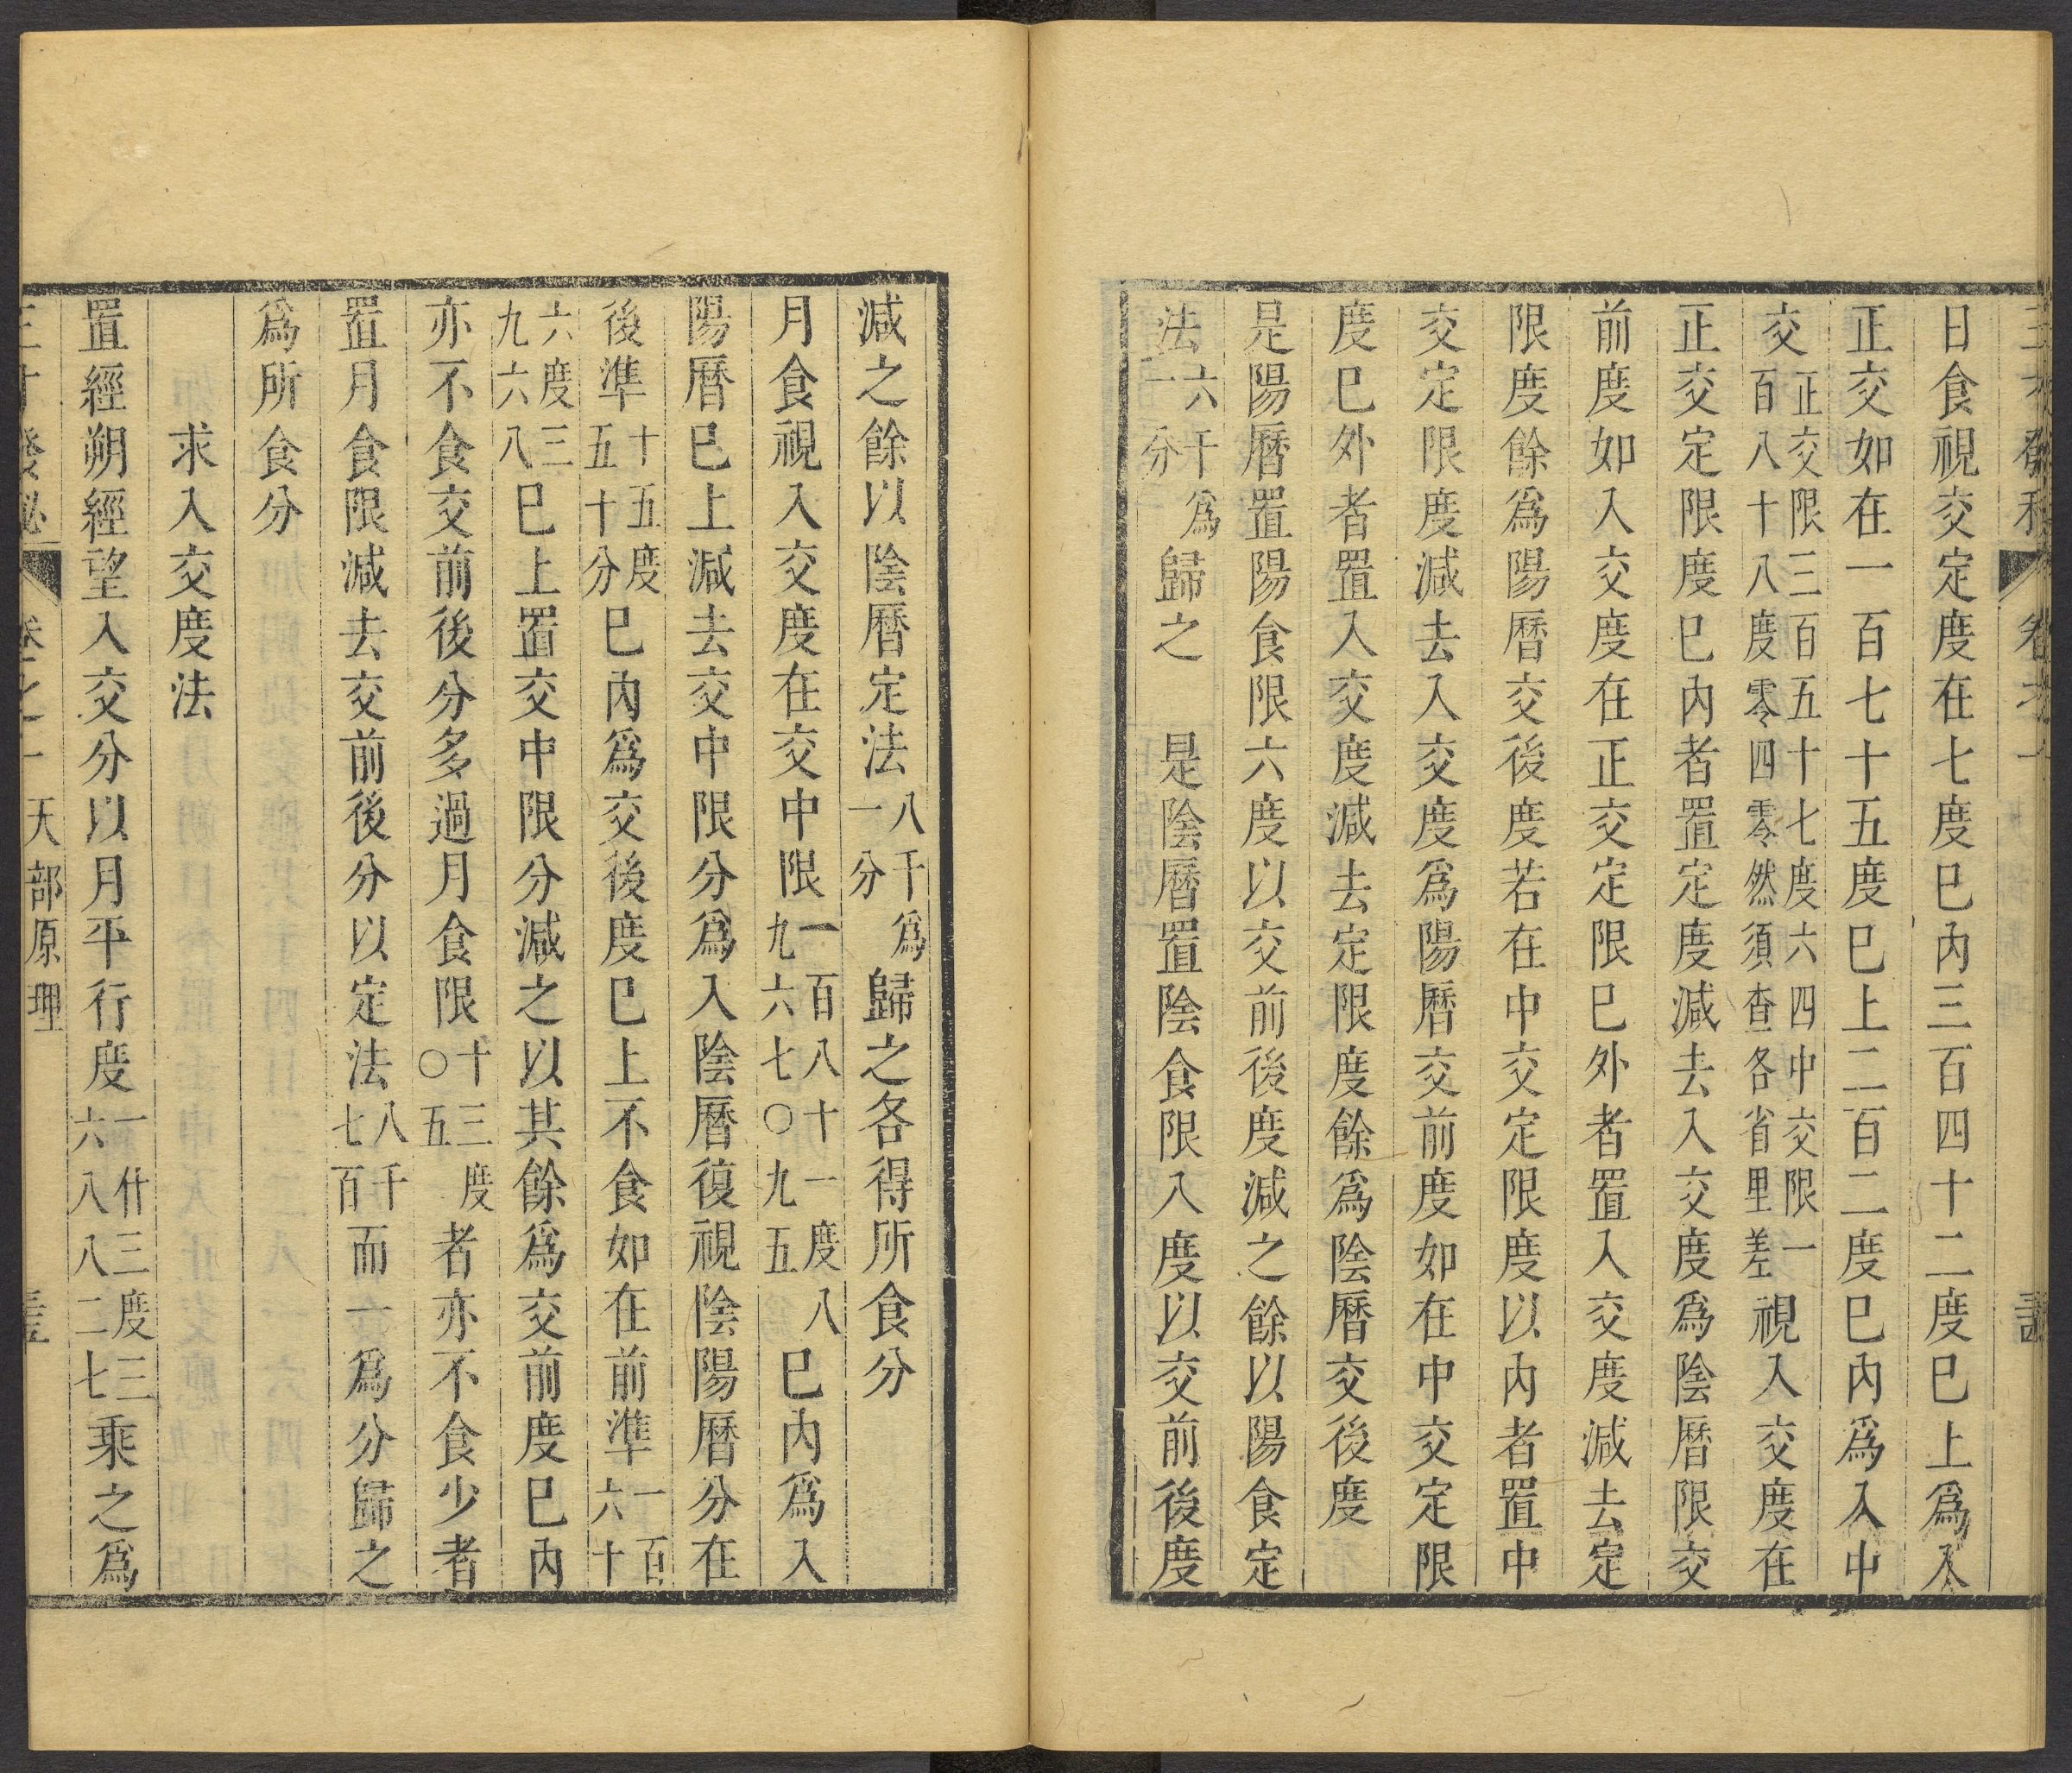 日食視交定度在七度巳內三百四十二度巳上爲入
正交如在一百七十五度巳上二百二度巳內爲入中
交正交限三百五十七度六四中交限一百八十八度零四零然須查各省里差視入交度在
正交定限度巳內者置定度減去入交度爲陰曆限交
前度如入交度在正交定限巳外者置入交度減去定
限度餘爲陽曆交後度若在中交定限度以內者置中
交定限度減去入交度爲陽曆交前度如在中交定限
度巳外者置入交度減去定限度餘爲陰曆交後度
是陽曆置陽食限六度以交前後度減之餘以陽食定
法六千爲一分歸之　是陰曆置陰食限入度以交前後度
減之餘以陰曆定法八千爲一分歸之各得所食分
月食視入交度在交中限一百八十一度八九六七〇九五巳內爲入
陽曆巳上減去交中限分爲入陰曆復視陰陽曆分在
後準十五度五十分巳內爲交後度巳上不食如在前準一百六十
六度三三九六八巳上置交中限分減之以其餘爲交前度巳內
亦不食交前後分多過月食限十三度〇五者亦不食少者
置月食限減去交前後分以定法八千七百而一爲分歸之
爲所食分
求入交度法
置經朔經望入交分以月平行度一什三度三六八八二七乘之爲
天部原理